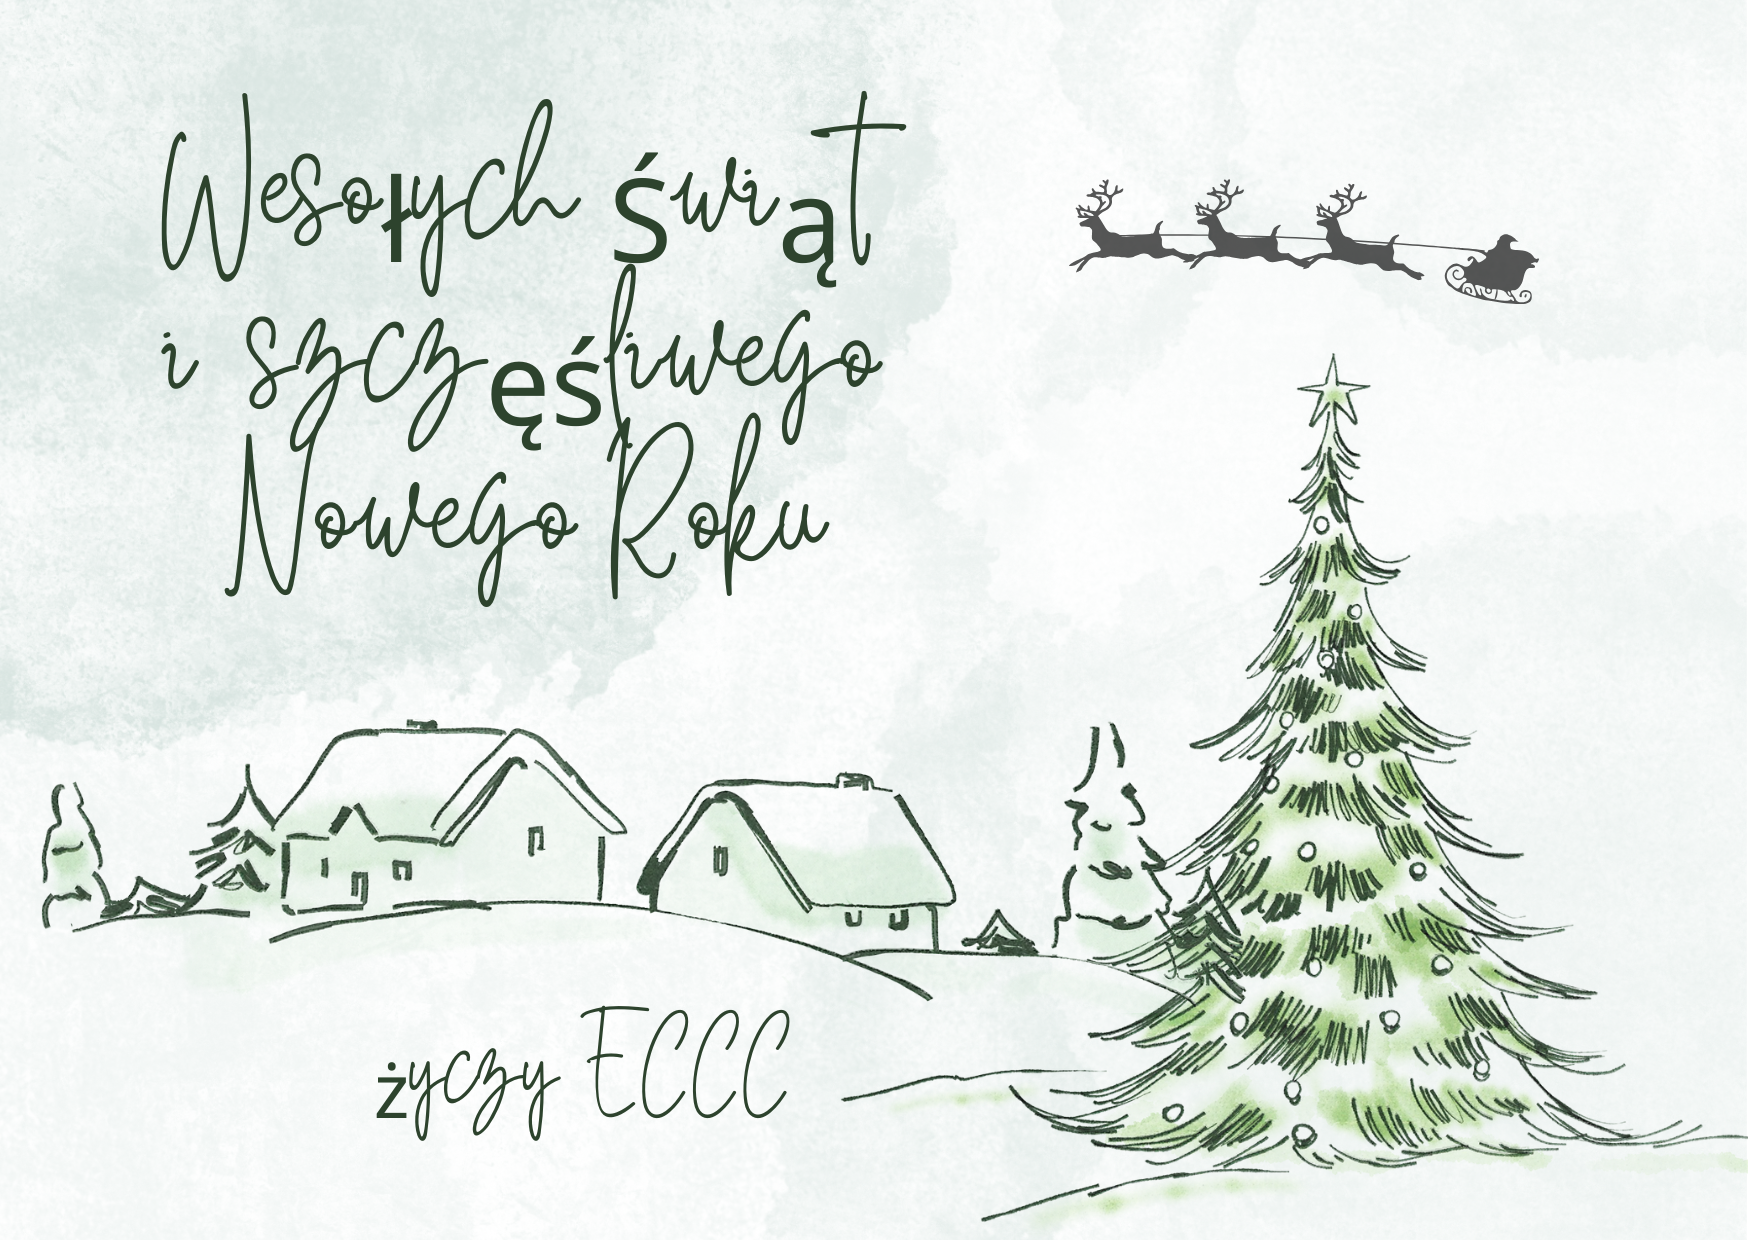 Wesołych Świąt
i szczęśliwego
Nowego Roku
życzy ECCC